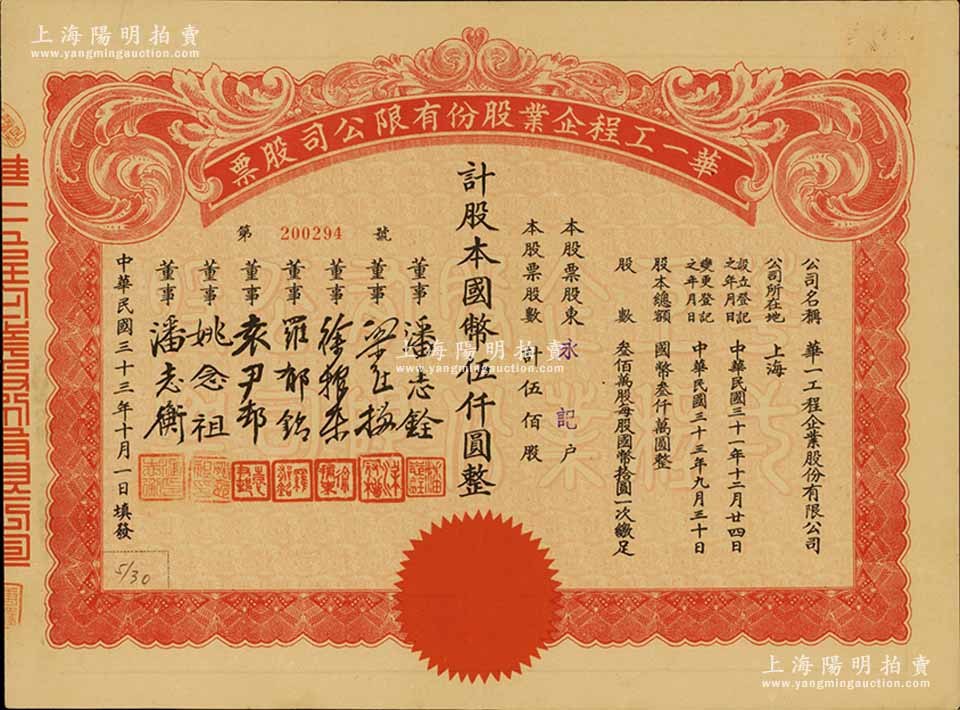 上海陽明拍賣
www.yangmingauction.com
上海陽明拍賣
www.yangmingauction.com
華一工程企業股份有限公司股票
公司名稱 華一工程企業股份有限公司
公司所在地 上海
設立登記之年月日 中華民國三十一年十二月廿四日
變更登記之年月日 中華民國三十三年九月三十日
股本總額 國幣叁仟萬圓整
股數 叁佰萬股每股國幣拾圓一次繳足
本股票股東 永記 户
本股票股數 計伍佰股
計股本國幣伍仟圓整
第 200294 號
董事 潘志銓
董事
董事
董事 羅郁銘
董事 袁尹邨
董事 姚念祖
董事 潘志衡
中華民國三十三年十月一日填發
5/30
上海陽明拍賣
www.yangmingauction.com
上海陽明拍賣
www.yangmingauction.com